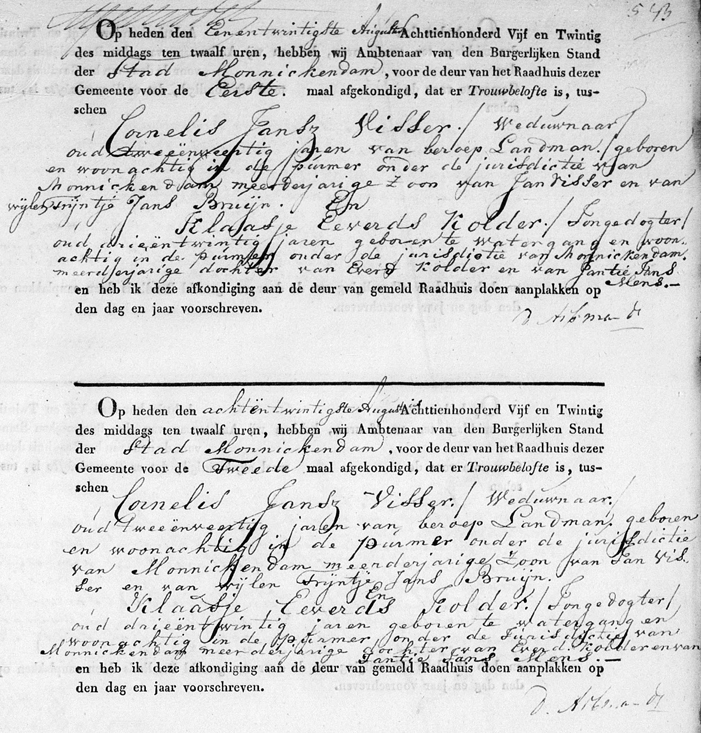 543
Op heden den Eenentwintigste Augustus Achttienhonderd Vijf en Twintig
des middags ten twaalf uren, hebben wij Ambtenaar van den Burgerlijken Stand
der Stad Monnickendam, voor de deur van het Raadhuis dezer
Gemeente voor de Eerste. maal afgekondigd, dat er Trouwbelofte is, tus-
schen
Cornelis Jansz Visser./ Weduwnaar/
oud tweeënveertig jaren van beroep Landman./ geboren
en woonachtig in de purmer onder de jurisdictie van
Monnickendam meerderjarige Zoon van Jan Visser en van
wijlen Trijntje Jans Bruijn. En
Klaasje Eeverds Kolder./ Jongedogter/
oud drieëntwintig jaren geboren te watergang en woon-
achtig in de purmer onder de jurisdictie van Monnickendam
meerderjarige dochter van Everd Kolder en van Jantie Jans
Mens.—
en heb ik deze afkondiging aan de deur van gemeld Raadhuis doen aanplakken op
den dag en jaar voorschreven.
Op heden den achtëntwintigste Augustus Achttienhonderd Vijf en Twintig
des middags ten twaalf uren, hebben wij Ambtenaar van den Burgerlijken Stand
der Stad Monnickendam, voor de deur van het Raadhuis dezer
Gemeente voor de Tweede maal afgekondigd, dat er Trouwbelofte is, tus-
schen
Cornelis Jansz Visser./ Weduwnaar/
oud tweeënveertig jaren van beroep Landman. geboren
en woonachtig in de Purmer onder de jurisdictie
van Monnickendam meerderjarige Zoon van Jan Vis-
ser en van wijlen Trijntje Jans Bruijn.
En
Klaasje Eeverds Kolder./ Jongedogter/
oud drieëntwintig jaren geboren te watergang en
woonachtig in de Purmer onder de Jurisdictie van
Monnickendam meerderjarige dochter van Everd Kolder en van
Jantie Jans Mens.—
en heb ik deze afkondiging aan de deur van gemeld Raadhuis doen aanplakken op
den dag en jaar voorschreven.